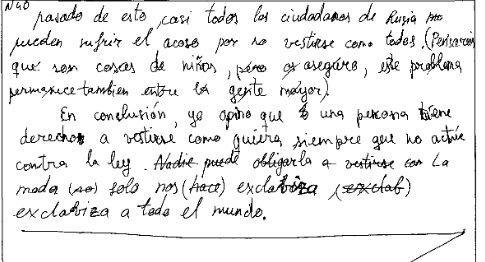 №40
pasado de esto, casi todos los ciudadanos de Rusia no
pueden sufrir el acoso por no vestirse como todos. (Pensarais
que son cosas de niños, pero os aseguro, este problema
permanece tambien entre la gente mayor)
En conclusión, yo opino que una persona tiene
derecho a vestirse como quiera, siempre que no actúe
contra la ley. Nadie puede obligarla a vestirse con La
moda (no) solo nos (hace) esclabiza (esclab)
esclabiza a todo el mundo.